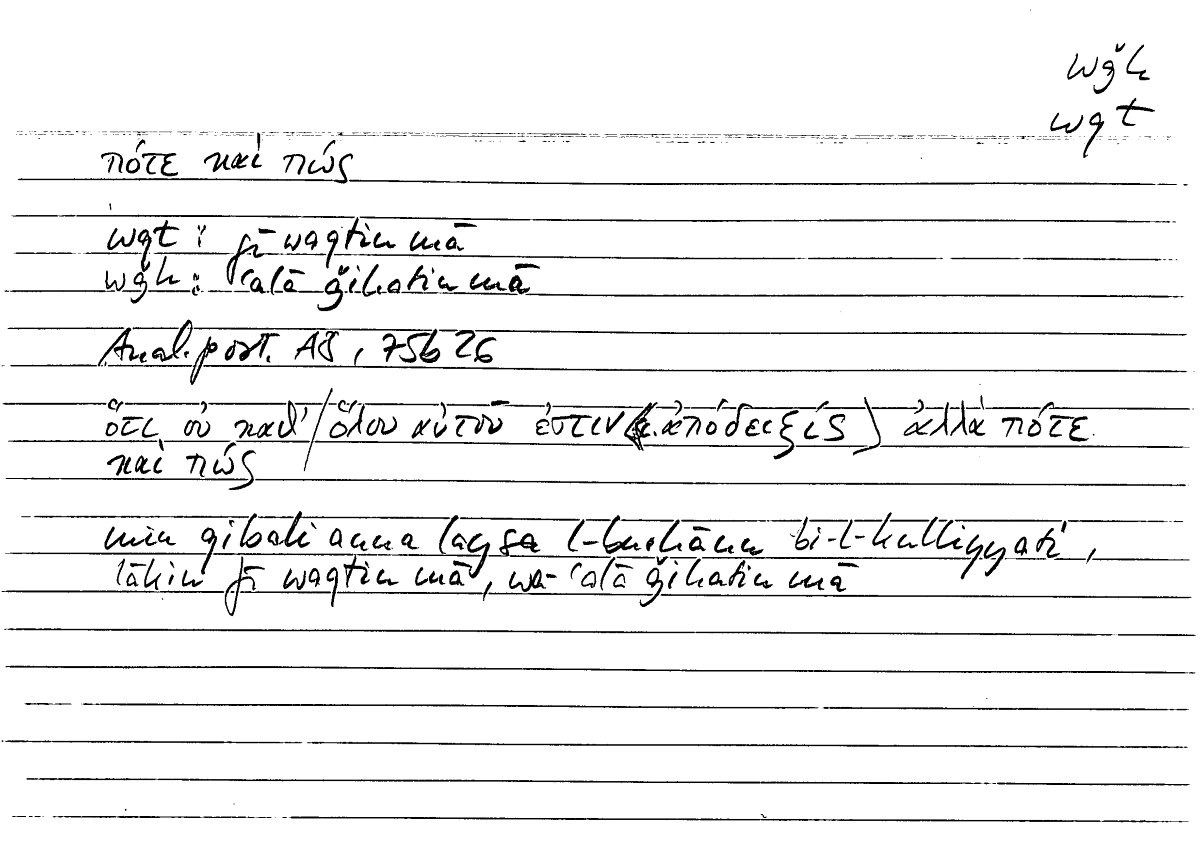 wǧh
wqt
πότε καὶ πώς
wqt : fī waqtin mā
wǧh : ʿalā ǧihatin mā
Anal. post. A8, 75b26
ὅτι οὐ καθ'/ὅλου αὐτοῦ ἐστιν (sc. ἀπόδειξίς) ἀλλὰ πότε
καὶ πώς
min qibali anna laysa l-burhānu bi-l-kulliyyati,
lākin fī waqtin mā, wa-ʿalā ǧihatin mā